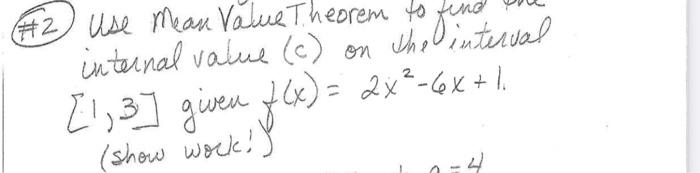 #2 Use Mean Value Theorem to find the
internal value (c) on the interval
[1,3] given f(x) = 2x²-6x+1.
(show work!)
=4